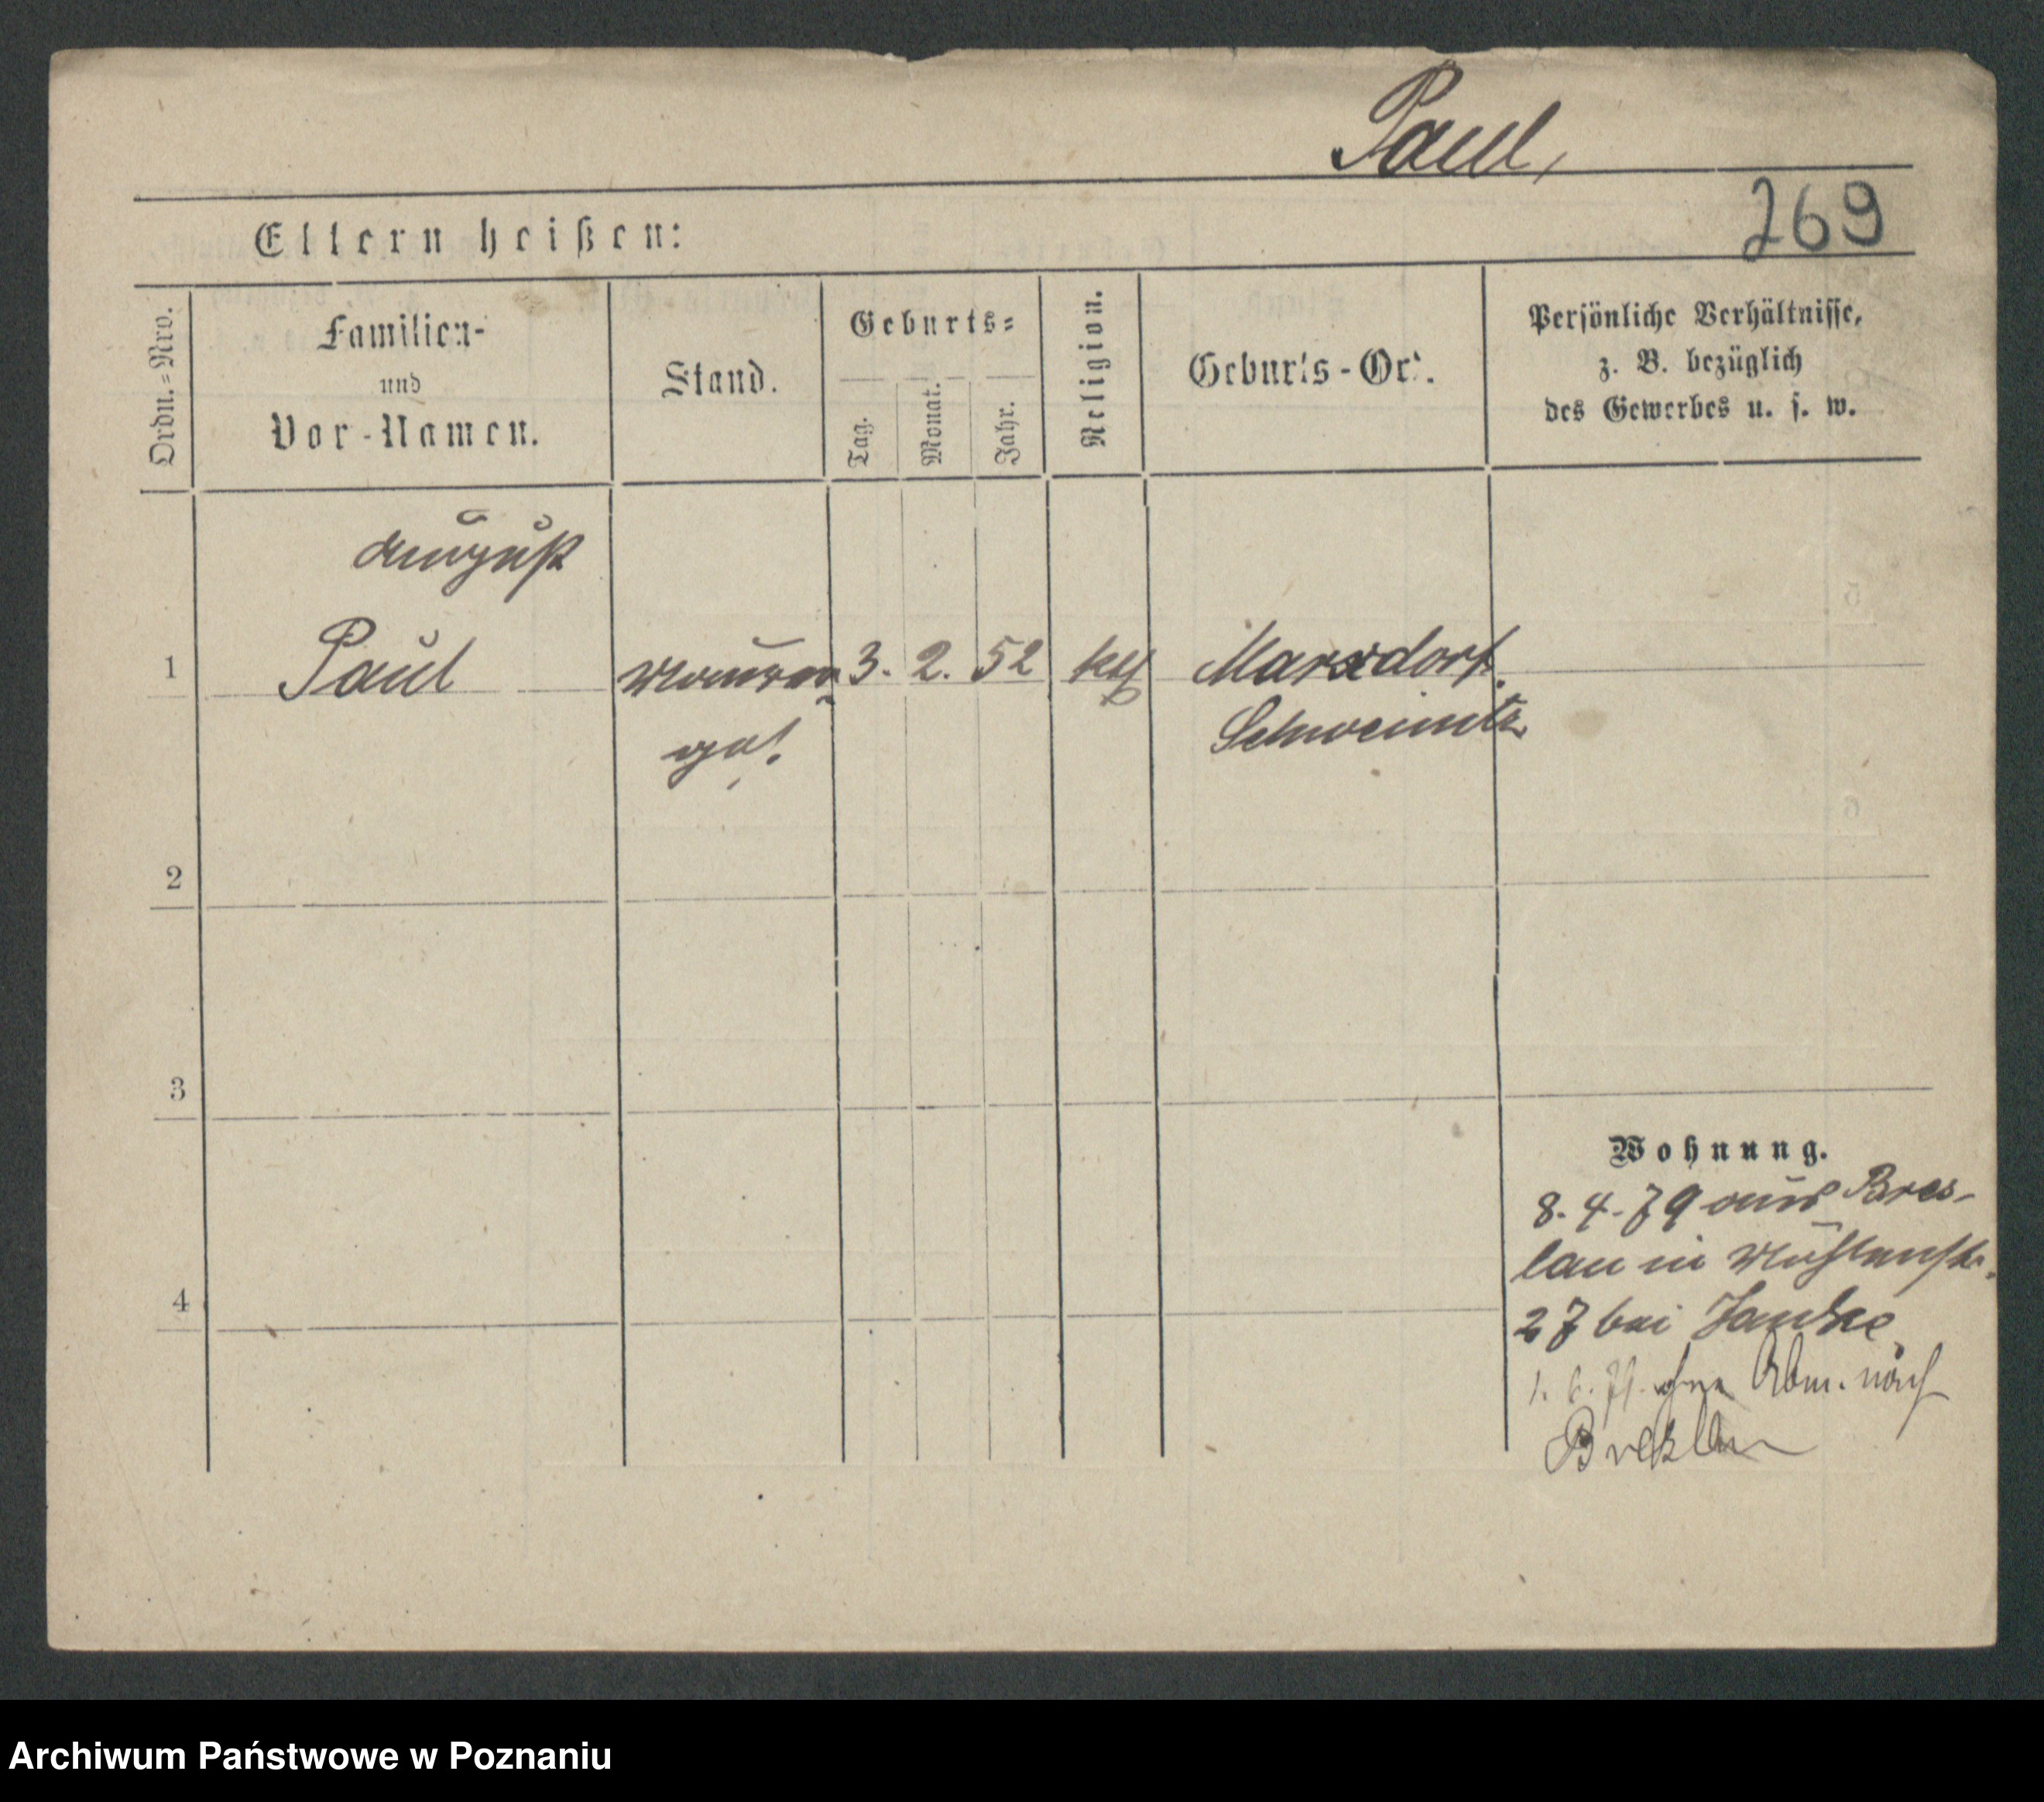 Paul,
269
Eltern heißen:
Ordn.=Nro.
Familien-
und
Vor-Namen.
Stand.
Geburts=
Tag.
Monat.
Jahr.
Religion.
Geburts-Ort.
Persönliche Verhältnisse,
z. B. bezüglich
des Gewerbes u. s. w.
August
1 Paul Maurer 3. 2. 52 kth Marxdorf.
Schweinitz
2
3
4
Wohnung.
8. 4. 79 aus Bres-
lau in Mühlenstr.
27 bei Janske
ohne Abm. nach
Archiwum Państwowe w Poznaniu